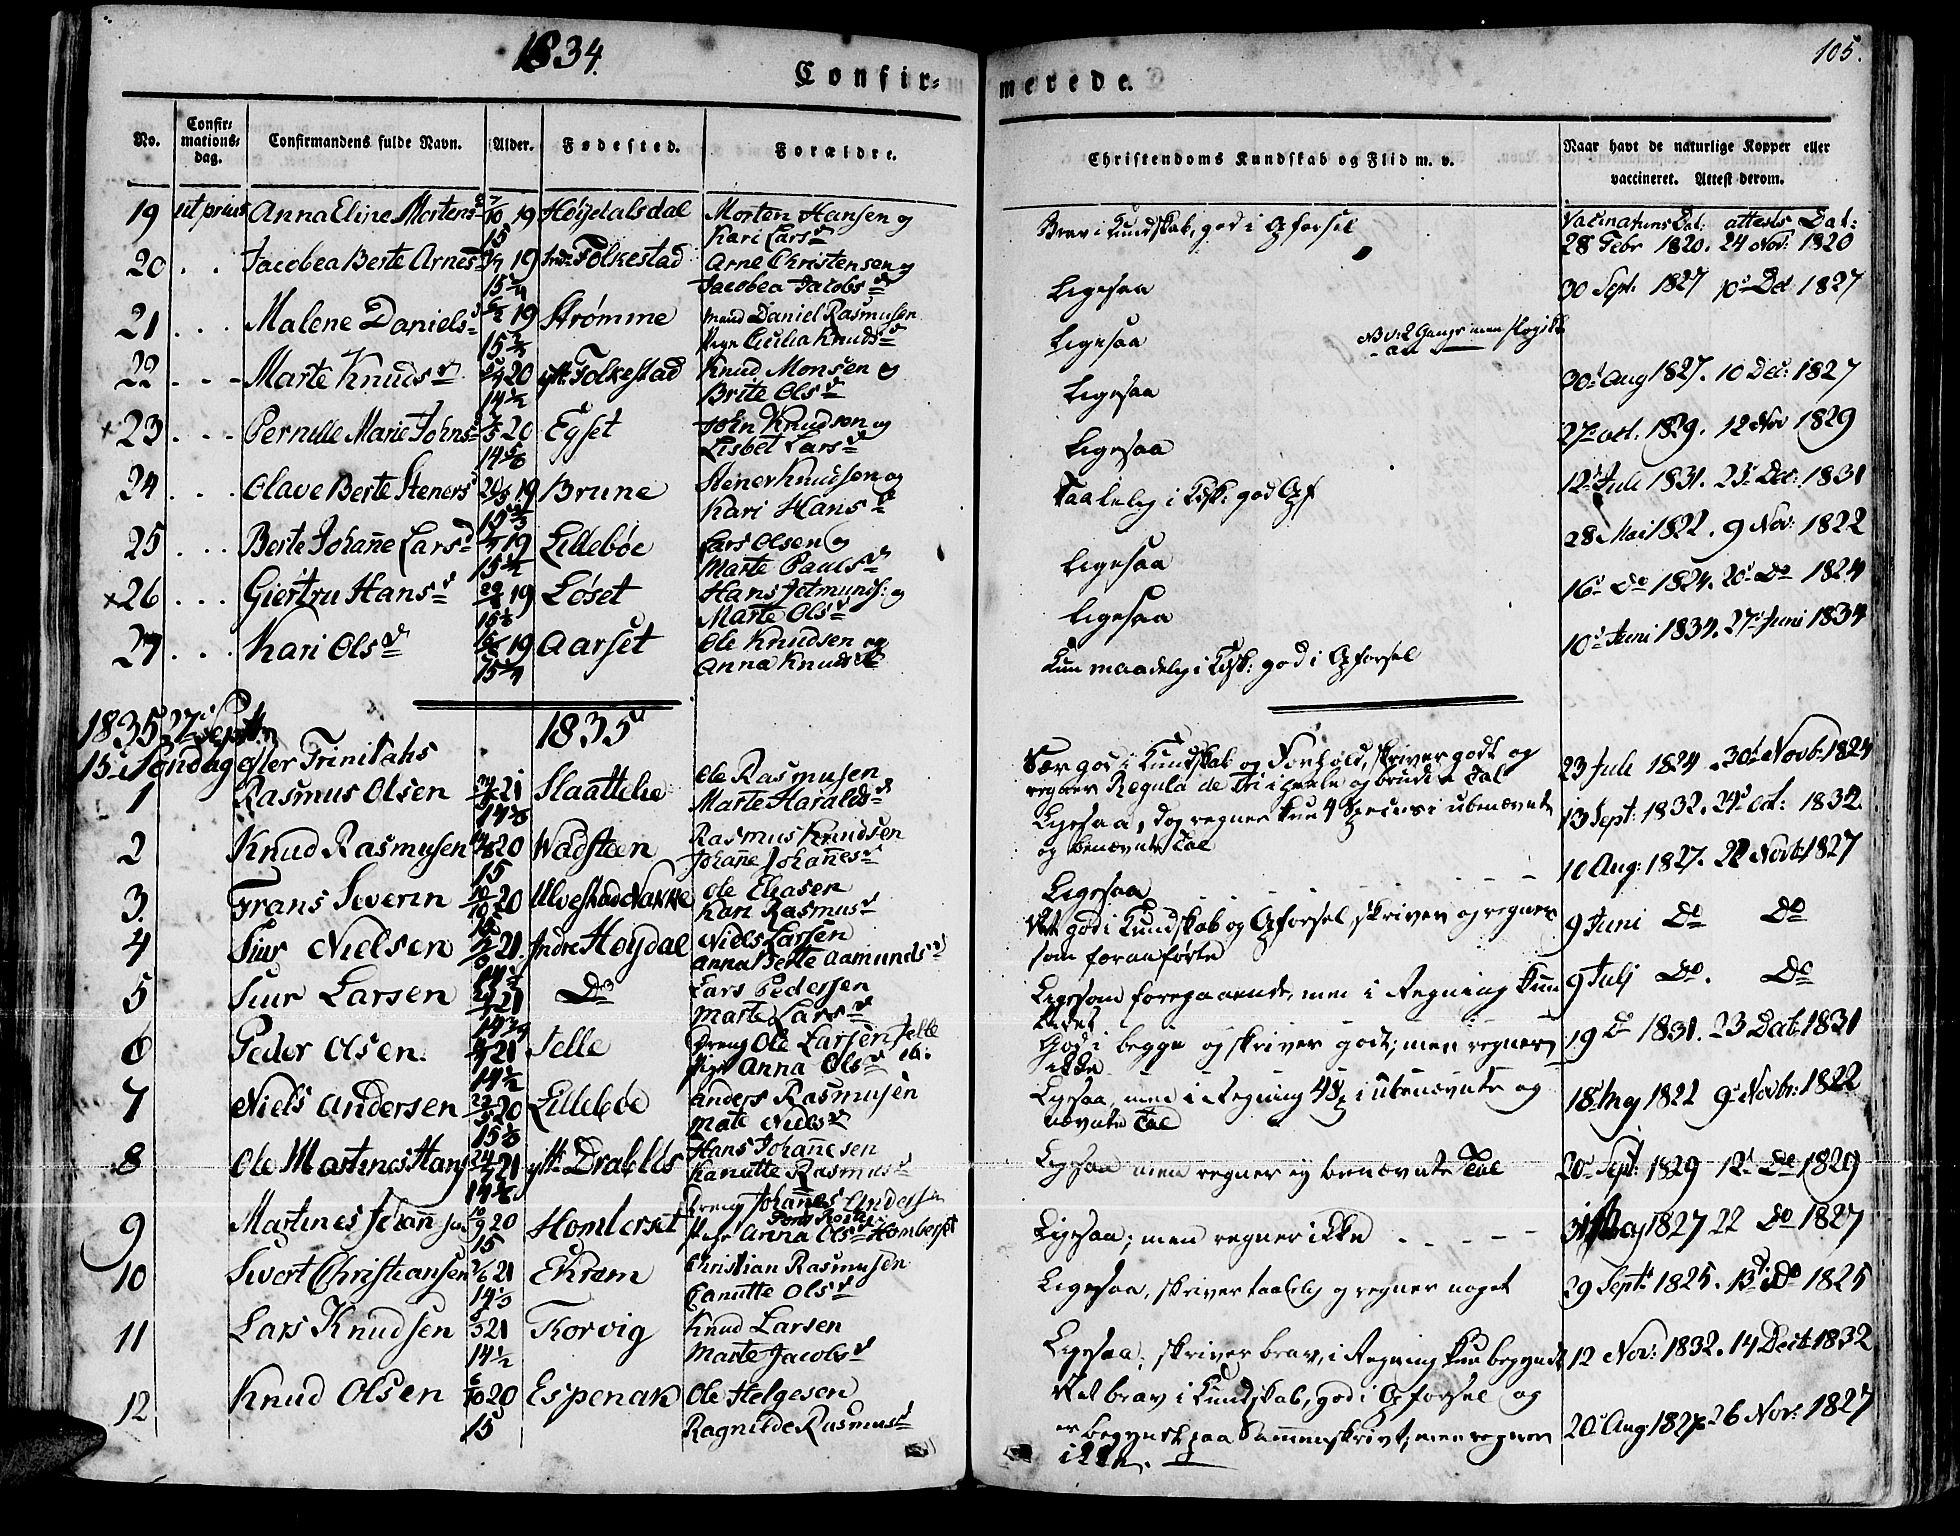 1834.
105.
Confir-
merede.
No.
Confir-
mations-
dag.
Confirmandens fulde Navn.
Alder.
Fødested.
Forældre.
Christendoms Kundskab og Flid m. v.
Naar havt de naturlige Kopper eller
vaccineret. Attest derom.
19 ut prius Anna Eline Mortens 7/10 19 Høydalsdal Morten Hansen og
15 Kari Larsd
Brav i Kundskab, god i Opførsel
Vaccinations Dat: attests Dat:
28 Febr 1820. 24 Nov: 1820
20 . . Jacobea Berte Arnes 19 Indr Folkestad Arne Christensen og
15 1/4 Jacobea Jacobsd
Ligesaa
30 Sept. 1827 10 Dec 1827
21 . . . Malene Daniels 19 Strømme mand Daniel Rasmusen
15 Pige Cecilia Knudsd
Ligesaa 2 Gange men slog ikke
an
22 . . . Marte Knudsd 20 ytt Folkestad Knud Monsen og
14 1/2 Brite Olsd
Ligesaa
30 Aug 1827. 10 Dec: 1827
×23 . . . Pernille Marie Johns 20 Egset John Knudsen og
14 Lisbet Larsd
Ligesaa
27 oct. 1829. 12 Nov 1829
24 . . . Olave Berte Steners 19 Brune Stener Knudsen og
15 Kari Hansd
Taalelig i Kdsk: god Opf
12 Juli 1831. 23 Dec: 1831
25 . . . Berte Johañe Larsd 19 Lillebøe Lars Olsen og
15 1/2 Marte Paulsd
Ligesaa
28 Mai 1822. 9 Nov: 1822
×26 . . . Giertru Hansd 19 Løset Hans Jetmunds: og
Marte Olsd
Ligesaa
16 Do 1824. 20 Do 1824
27 . . . Kari Olsd 19 Aarset Ole Knudsen og
15 1/4 Anna Knudsd
Kun maadelig i Kdsk: god i Opførsel
10 Juni 1834. 27 Juni 1834
1835 27 Septbr
1835
15 Søndag efter Trinitatis
1 Rasmus Olsen 21 Slaattelie Ole Rasmusen
14 Marte Haraldsd
Sær god i Kundskab og Forhold, skriver godt og
regner Regula de Tri i heele og brudne Tal
23 Juli 1824. 30 Novb: 1824
2 Knud Rasmusen 20 Wadsteen Rasmus Knudsen
15 Johañe Johañesd
Ligesaa, dog regner kun 4 Species i ubenævnte
og benævnte Tal
13 Sept: 1832. 24 oct: 1832.
3 Frans Severin 20 Ulvestad Nakke Ole Eliasen
Kari Rasmusd
Ligesaa
10 Aug: 1827. 22 Novb: 1827
4 Siur Nielsen 21 Indre Høydal Niels Larsen
14 Anna Berte Aamundsd
Vel god i Kundskab og Opførsel skriver og regner
som foranførte
9 Juni Do Do
5 Siur Larsen 21 Do Lars Pedersen
14 3/4 Marte Larsd
Ligesom foregaaende, men i Regning kun
lidet
9 Julj Do. Do
6 Peder Olsen. 21 Selle Dreng Ole Larsen Selle
14 1/2 Pige Anna Olsd ib.
God i begge og skriver godt; men regner
ikke
19 Do 1831. 23 Dat: 1831
7 Niels Andersen 20 Lillebøe Anders Rasmusen
15 Mate Nielsd
Ligesaa, men i Regning 4 Sp i ubenævnte og
nævnte Tal
18 May 1822 9 Novbr: 1822
8 Ole Martines Hans 21 ytt Drabløs Hans Johañesen
14 Kanutte Rasmusd
Ligesaa men regner ej benævnte Tal
20 Sept: 1829 12 Do 1829
9 Martines Johañ 20 Homberset Dreng Johañes Andersen
15 Pige Anna Olsd Homberset
Ligesaa; men regner ikke - - - - -
31 May 1827 22 Do 1827
10 Sivert Christiansen 21 Ekrem Christian Rasmusen
14 1/3 Canutte Olsd
Ligesaa, skriver taalelig og regner noget
29 Sept: 1825. 13 Do 1825
11 Lars Knudsen 21 Torvig Knud Larsen
14 1/2 Marte Jacobsd
Ligesaa; skriver brav, i Regning kun begyndt
12 Nov: 1832. 14 Dec: 1832
12 Knud Olsen 6/10 20 Espenak Ole Helgesen
15 Ragnilde Rasmusd
Vel brav i Kundskab, god i Opførsel og
er begyndt paa Sammenskrivt; men regner
ikke.
20 Aug 1827 26 Nov: 1827